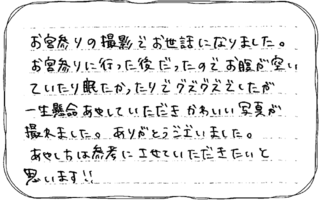 お宮参りの撮影でお世話になりました。
お宮参りに行った後だったのでお腹が空い
ていたり眠たかったりでグズグズでしたが
一生懸命あやしていただきかわいい写真が
撮れました。ありがとうございました。
あやし方は参考にさせていただきたいと
思います!!